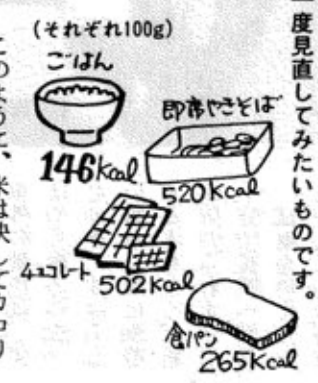 一度見直してみたいものです。
(それぞれ100g)
ごはん
146Kcal
即席やきそば
520Kcal
チョコレート
502Kcal
食パン
265Kcal
このように、米は決してカロリ